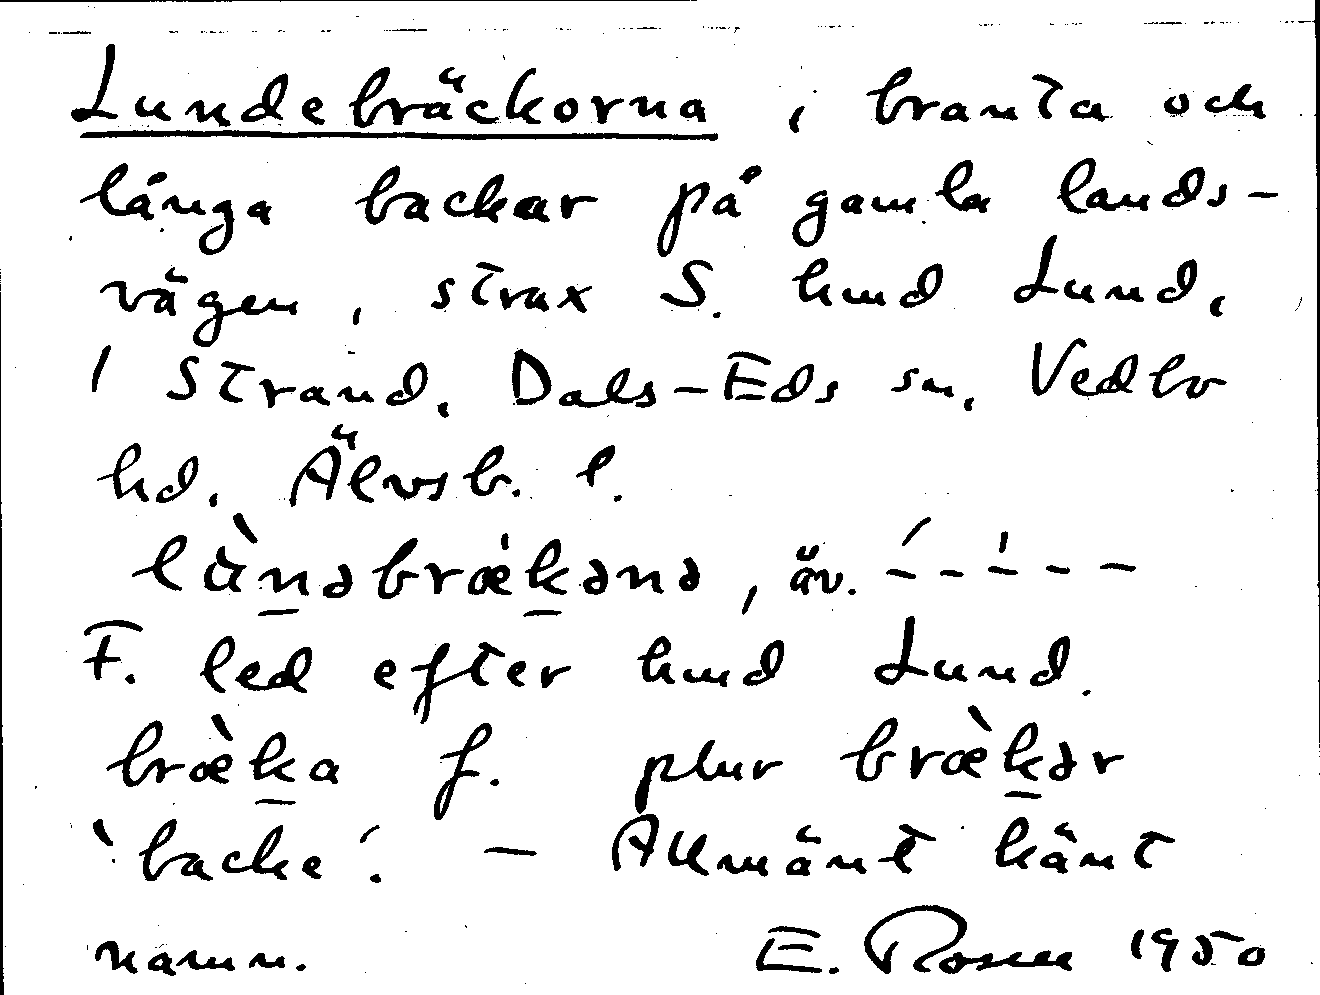 Lundebräckorna, branta och
långa backar på gamla lands-
vägen, strax S. hmd Lund,
/ Strand, Dals-Eds sn, Vedbo
hd, Älvsb. l.
lùn̲əbræ̍k̲ənə, äv. ´- - ̍- - -
F. led efter hmd Lund.
bræ̀k̲a f. plur bræ̀k̲ər
`backe´. – Allmänt känt
namn. E. Rosen 1950